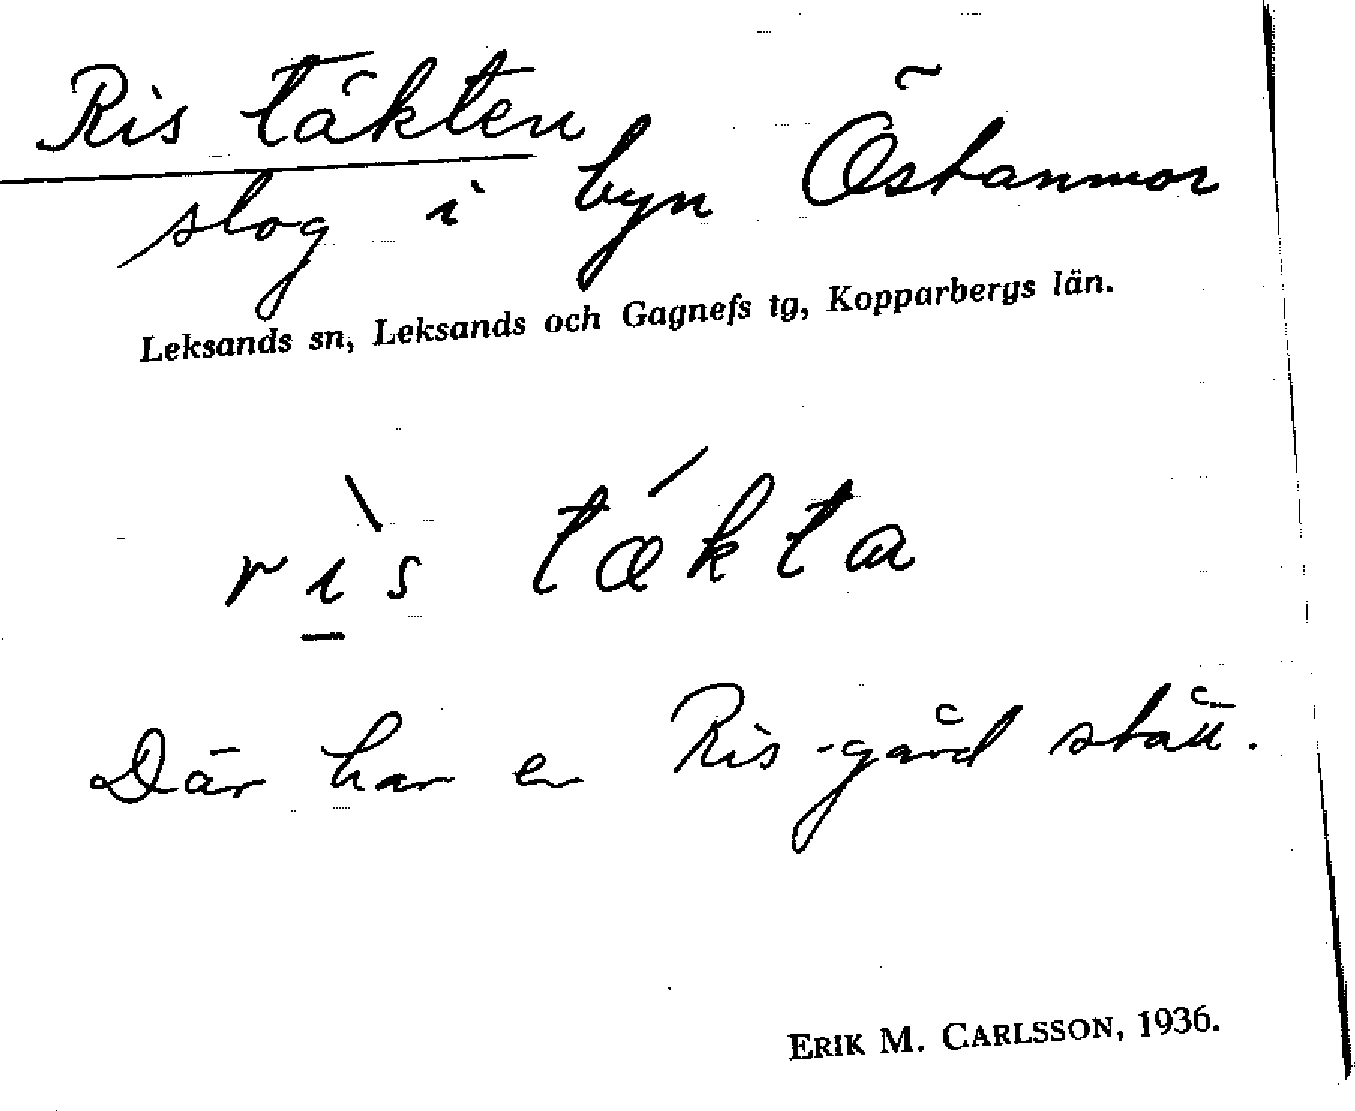 Ris täkten
slog i byn Östanmor
Leksands sn, Leksands och Gagnefs tg, Kopparbergs län.
rìs tǽkta
Där har en Ris-gård stått.
ERIK M. CARLSSON, 1936.